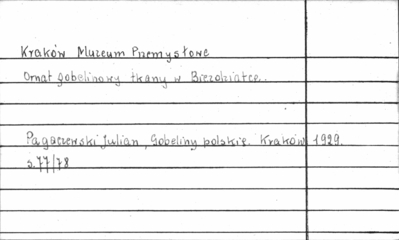 Kraków Muzeum Przemysłowe
Ornat gobelinowy tkany w Bieździatce.
Pagaczewski Julian, Gobeliny polskie. Kraków 1929.
s. 77/78